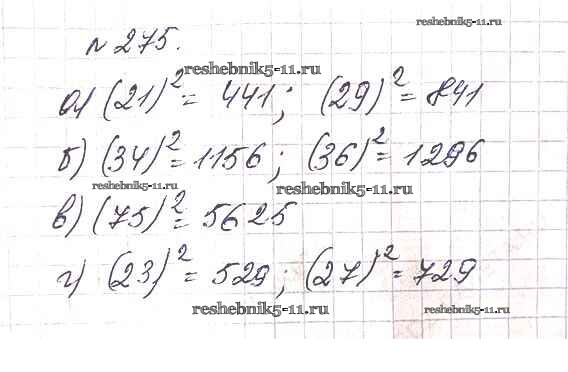 reshebnik5-11.ru
№ 275.
reshebnik5-11.ru
а) (21)² = 441; (29)² = 841
б) (34)² = 1156; (36)² = 1296
reshebnik5-11.ru reshebnik5-11.ru
в) (75)² = 5625
г) (23)² = 529; (27)² = 729
reshebnik5-11.ru reshebnik5-11.ru